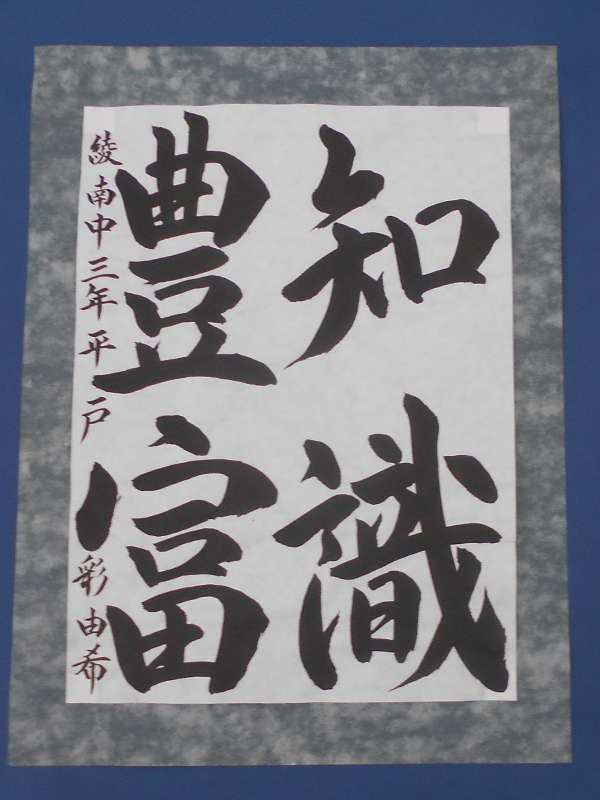 知識
豊富
綾南中三年平戸彩由希